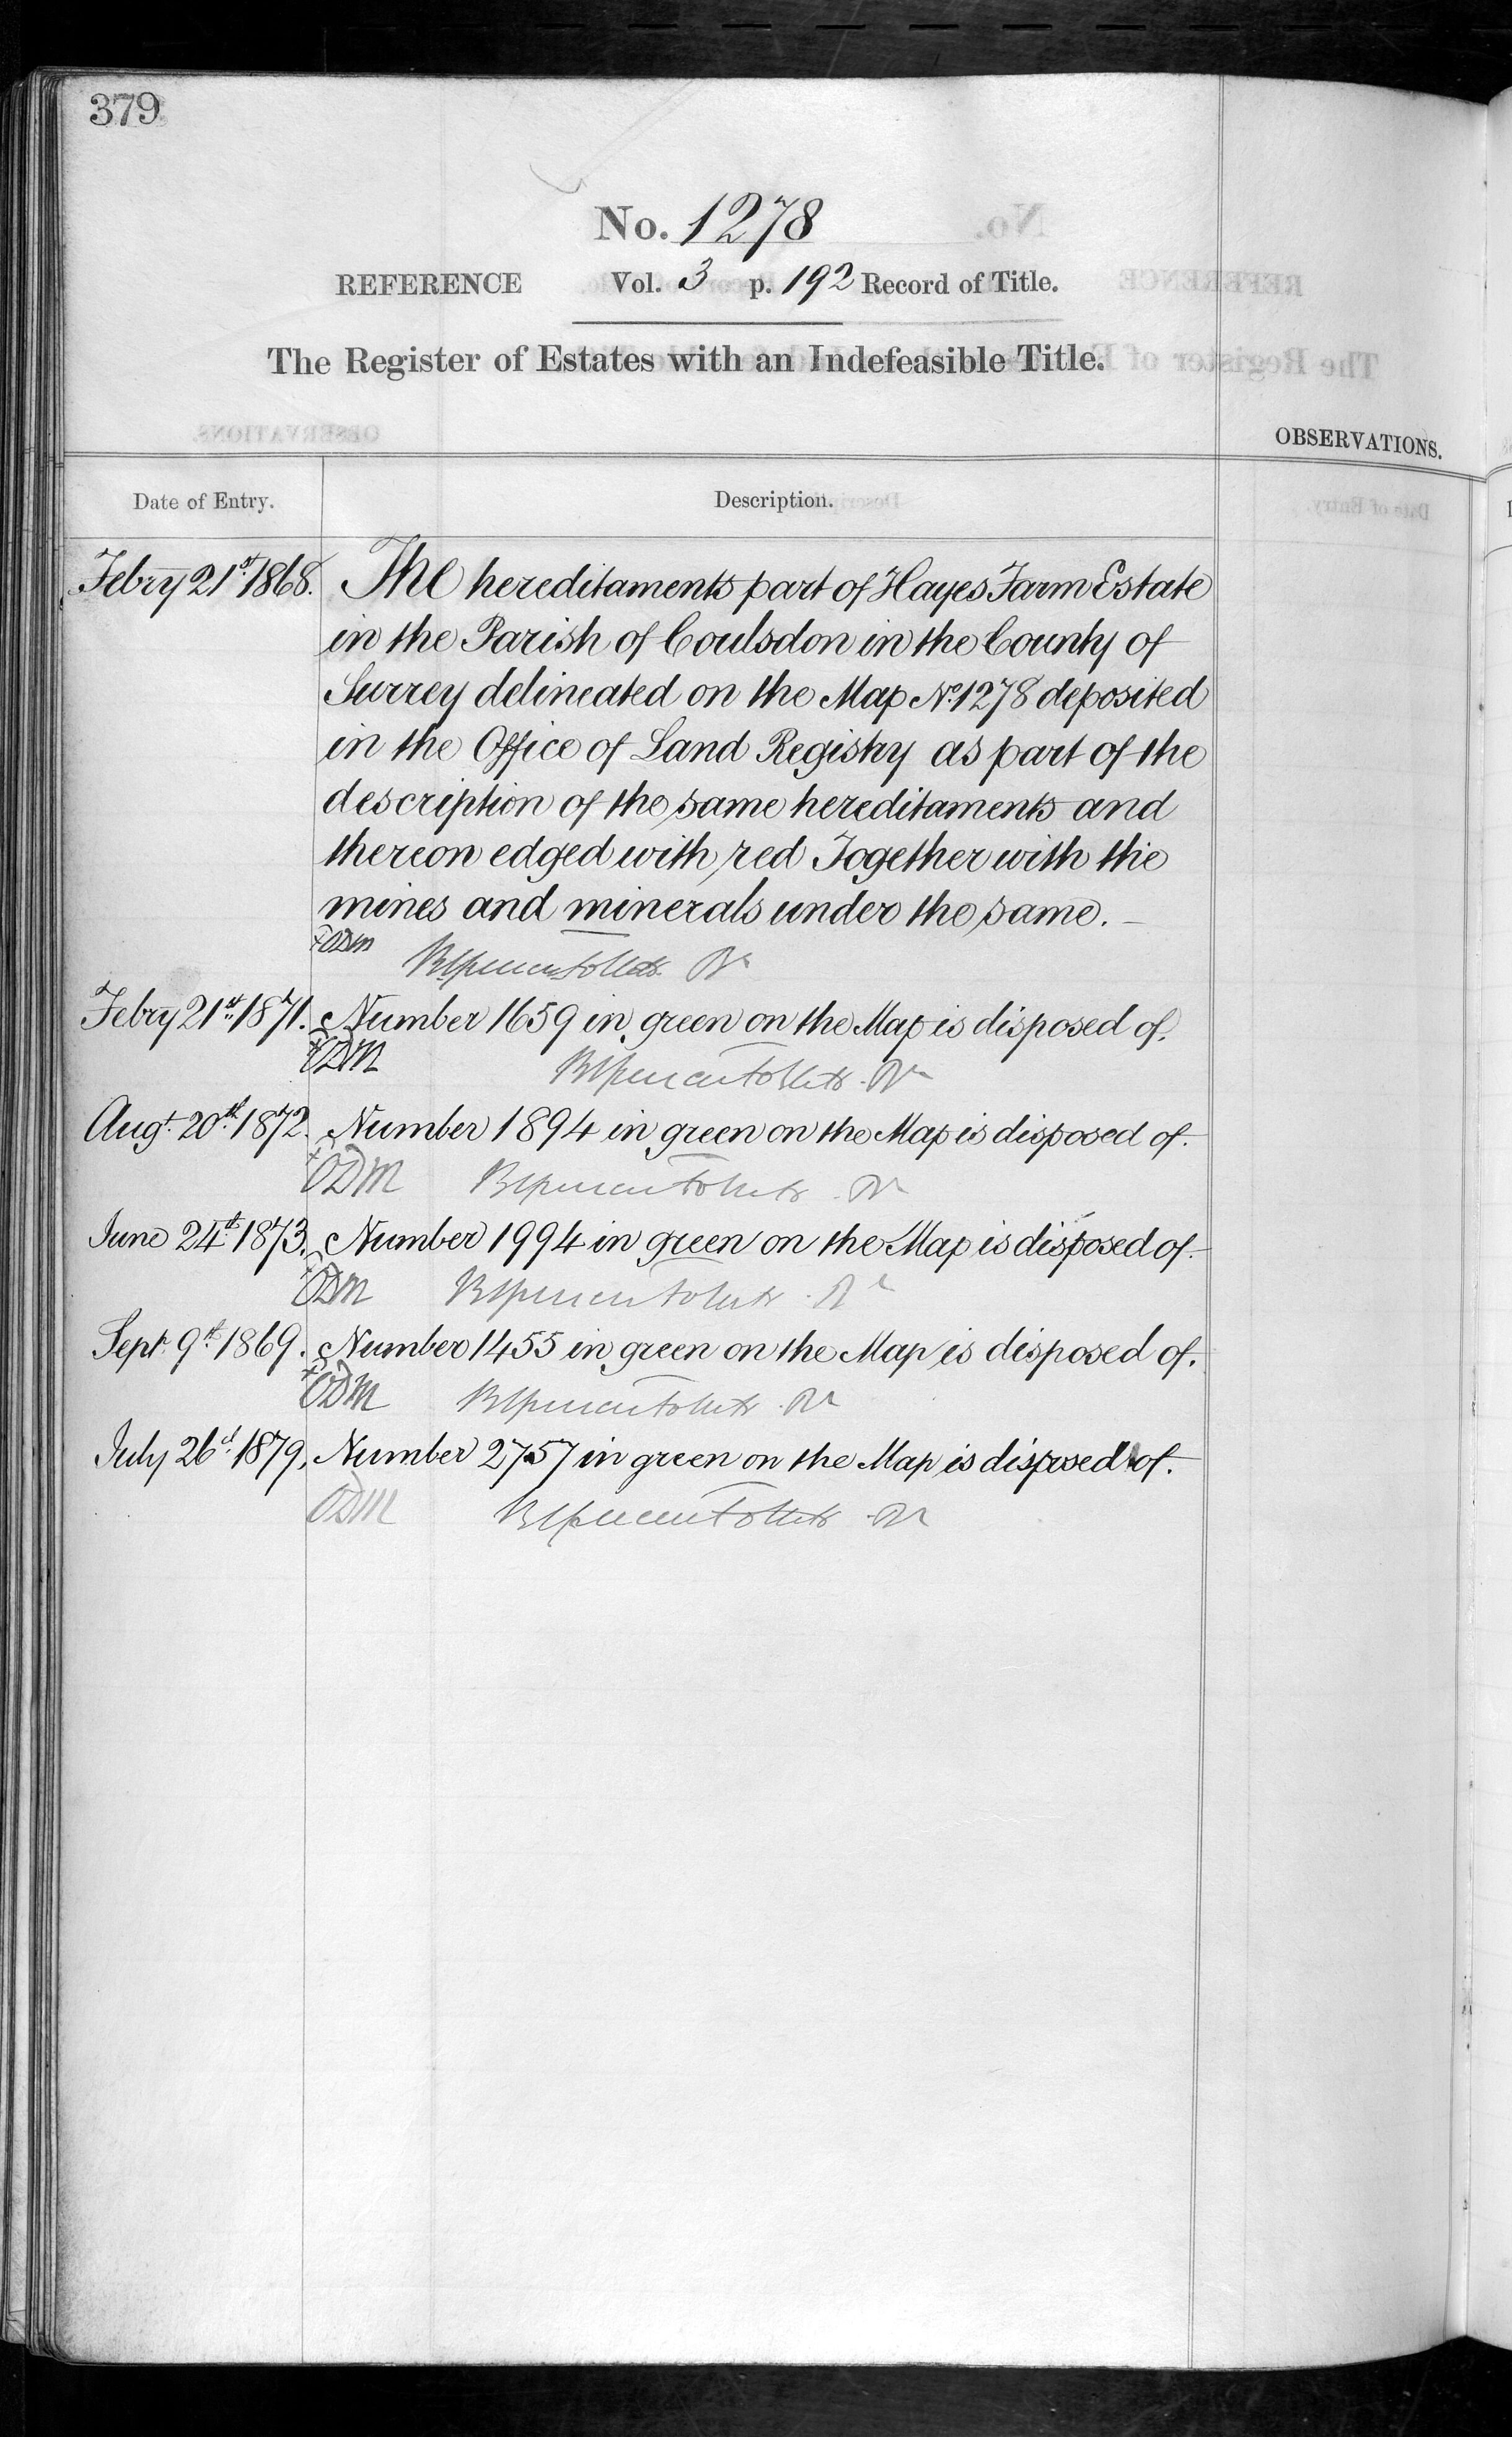 379
No. 1278
REFERENCE Vol. 3 p. 192 Record of Title.
The Register of Estates with an Indefeasible Title.
OBSERVATIONS.
Date of Entry. Description.
Febry 21st 1868. The hereditaments part of Hayes Farm Estate
in the Parish of Coulsdon in the County of
Surrey delineated on the Map No. 1278 deposited
in the Office of Land Registry as part of the
description of the same hereditaments and
thereon edged with red Together with the
mines and minerals under the same.
ODM
Febry 21st 1871. Number 1659 in green on the Map is disposed of.
ODM
Augt. 20th 1872. Number 1894 in green on the Map is disposed of.
ODM
June 24th 1873. Number 1994 in green on the Map is disposed of.
ODM
Sept. 9th 1869. Number 1455 in green on the Map is disposed of.
ODM
July 26d 1879, Number 2757 in green on the Map is disposed of.
ODM